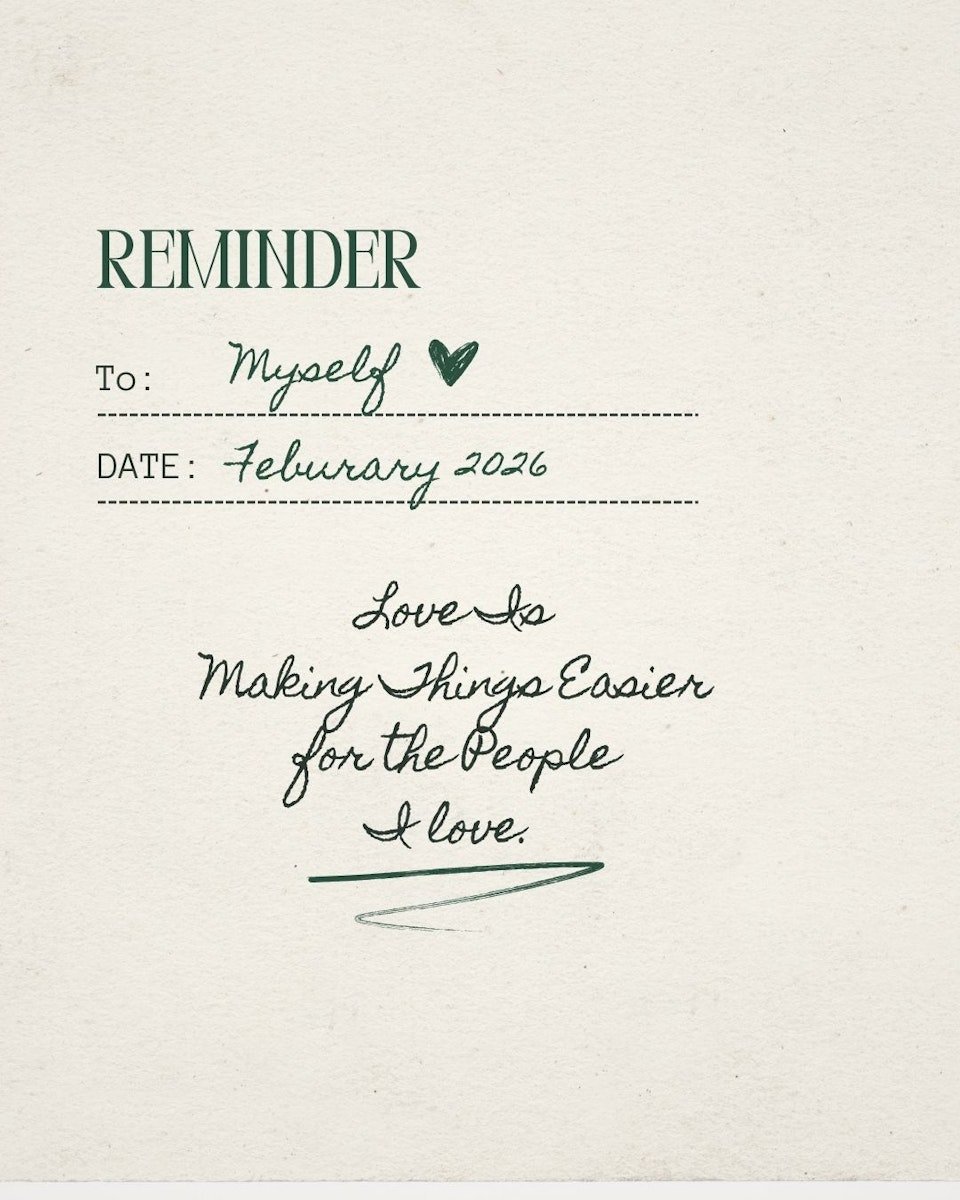 REMINDER
To: Myself
DATE: Feburary 2026
Love Is
Making Things Easier
for the People
I love.